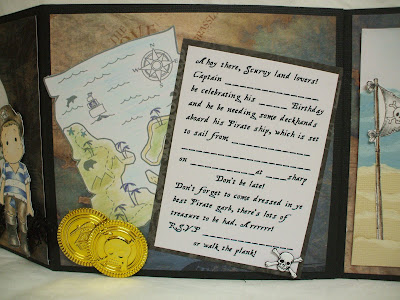 Ahoy there, Scurvy land lovers!
Captain ____________________
be celebrating his ______ Birthday
and he be needing some deckhands
aboard his Pirate ship, which is set
to sail from ____________________
____________________
on ______________ at ____ sharp
Don't be late!
Don't forget to come dressed in ye
best Pirate garb, there's lots of
treasure to be had. Arrrrrr!
R.S.V.P ____________________
or walk the plank!